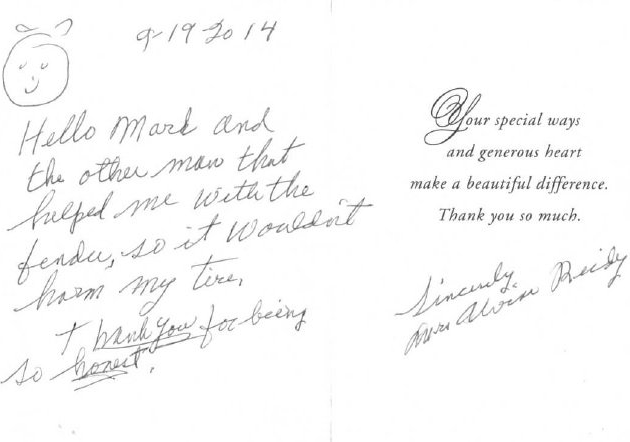 9-19 2014
Hello Mark and
the other man that
helped me with the
fender, so it wouldn't
harm my tire,
+ thank you for being
so honest.
Your special ways
and generous heart
make a beautiful difference.
Thank you so much.
Sincerely
Reidy